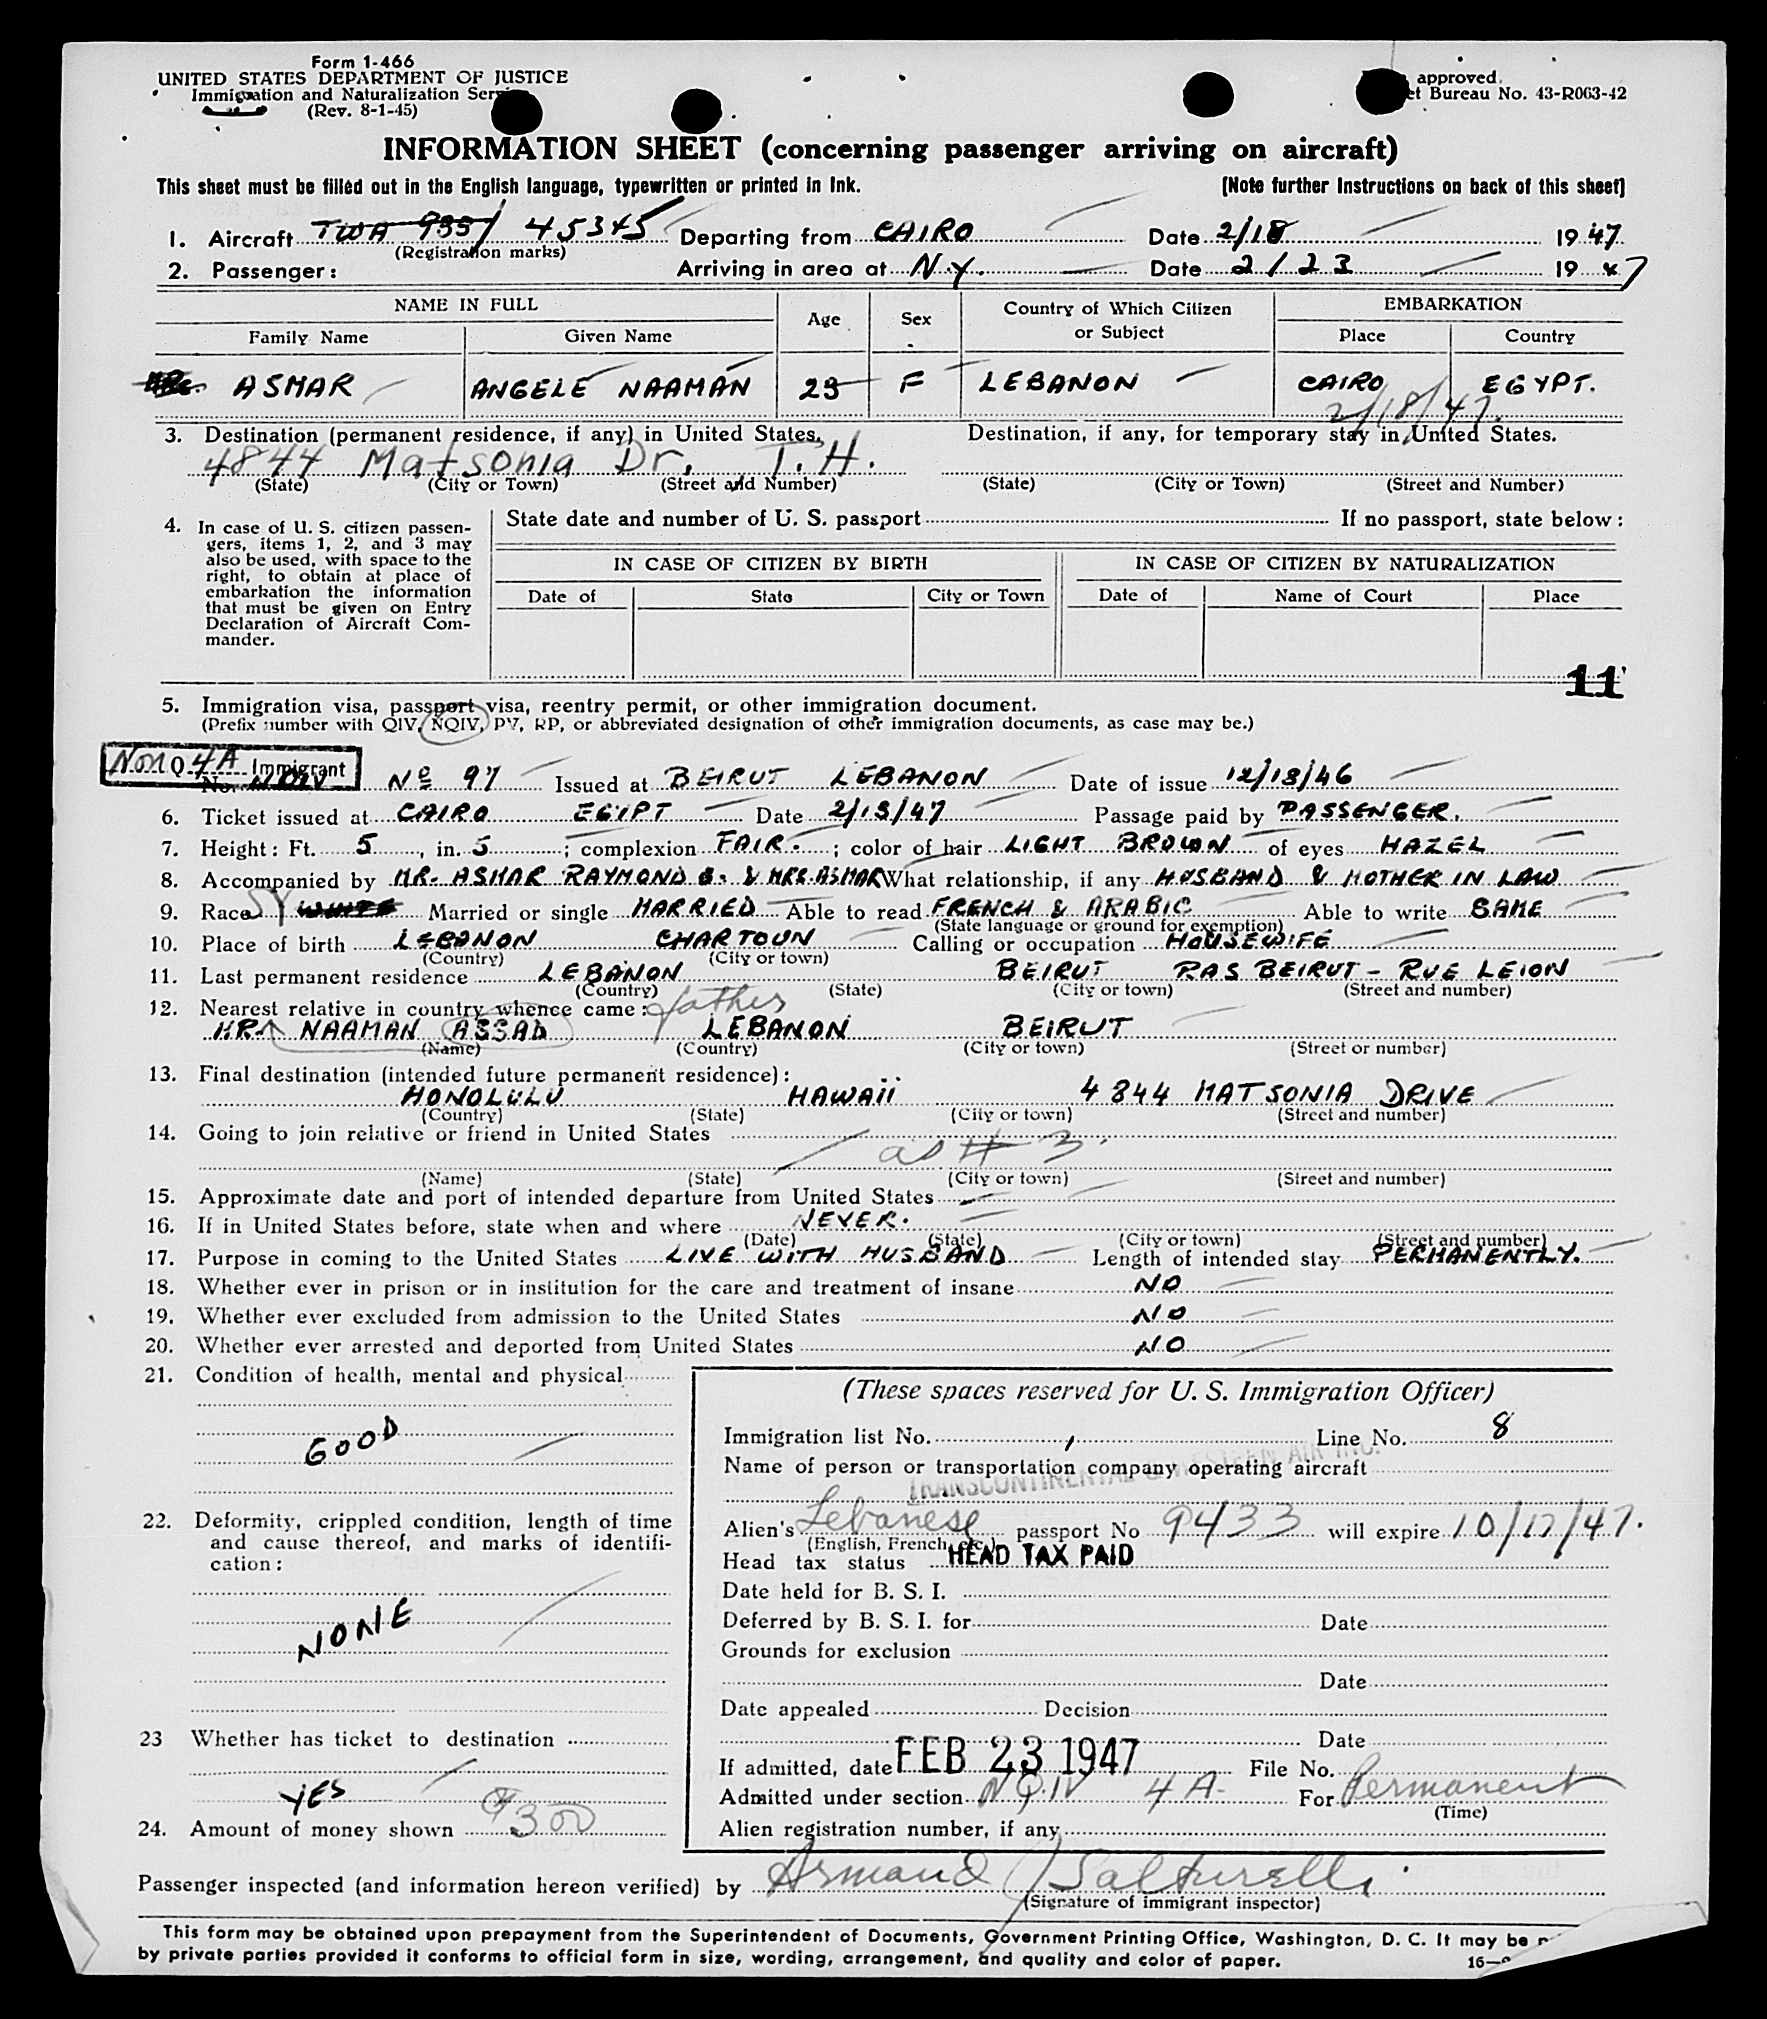 Form 1-466
UNITED STATES DEPARTMENT OF JUSTICE
Immigration and Naturalization
(Rev. 8-1-45)
approved.
Bureau No. 43-R063-42
INFORMATION SHEET (concerning passenger arriving on aircraft)
This sheet must be filled out in the English language, typewritten or printed in ink. [Note further instructions on back of this sheet]
1. Aircraft TWA 45345 Departing from CAIRO Date 2/18 1947
(Registration marks)
2. Passenger: Arriving in area at N.Y. Date 2/23 1947
NAME IN FULL Age Sex Country of Which Citizen or Subject EMBARKATION
Family Name Given Name Place Country
ASMAR ANGELE NAAMAN 23 F LEBANON CAIRO EGYPT.
2/18/47.
3. Destination (permanent residence, if any) in United States. Destination, if any, for temporary stay in United States.
4844 Matsonia Dr. T.H.
(State) (City or Town) (Street and Number) (State) (City or Town) (Street and Number)
4. In case of U. S. citizen passen-
gers, items 1, 2, and 3 may
also be used, with space to the
right, to obtain at place of
embarkation the information
that must be given on Entry
Declaration of Aircraft Com-
mander.
State date and number of U. S. passport If no passport, state below:
IN CASE OF CITIZEN BY BIRTH IN CASE OF CITIZEN BY NATURALIZATION
Date of State City or Town Date of Name of Court Place
11
5. Immigration visa, passport visa, reentry permit, or other immigration document.
(Prefix number with QIV, NQIV, PV, RP, or abbreviated designation of other immigration documents, as case may be.)
Non Q 4A Immigrant
No. NQIV Nº 97 Issued at BEIRUT LEBANON Date of issue 12/18/46
6. Ticket issued at CAIRO EGYPT Date 2/13/47 Passage paid by PASSENGER.
7. Height: Ft. 5, in. 5; complexion FAIR.; color of hair LIGHT BROWN of eyes HAZEL
8. Accompanied by MR. ASMAR RAYMOND G. & MRS. ASMAR What relationship, if any HUSBAND & MOTHER IN LAW
9. Race SY WHITE Married or single MARRIED Able to read FRENCH & ARABIC Able to write SAME
(State language or ground for exemption)
10. Place of birth LEBANON CHARTOUN Calling or occupation HOUSEWIFE
(Country) (City or town)
11. Last permanent residence LEBANON BEIRUT RAS BEIRUT - RUE LEION
(Country) (State) (City or town) (Street and number)
12. Nearest relative in country whence came: father
MR. NAAMAN ASSAD LEBANON BEIRUT
(Name) (Country) (City or town) (Street or number)
13. Final destination (intended future permanent residence):
HONOLULU HAWAII 4844 MATSONIA DRIVE
(Country) (State) (City or town) (Street and number)
14. Going to join relative or friend in United States
as # 3
(Name) (State) (City or town) (Street and number)
15. Approximate date and port of intended departure from United States
16. If in United States before, state when and where NEVER.
(Date) (State) (City or town) (Street and number)
17. Purpose in coming to the United States LIVE WITH HUSBAND Length of intended stay PERMANENTLY.
18. Whether ever in prison or in institution for the care and treatment of insane NO
19. Whether ever excluded from admission to the United States NO
20. Whether ever arrested and deported from United States NO
21. Condition of health, mental and physical
GOOD
22. Deformity, crippled condition, length of time
and cause thereof, and marks of identifi-
cation:
NONE
23 Whether has ticket to destination
YES
24. Amount of money shown $300
(These spaces reserved for U. S. Immigration Officer)
Immigration list No. Line No. 8
Name of person or transportation company operating aircraft
TRANSCONTINENTAL & WESTERN AIR INC.
Alien's Lebanese passport No 9433 will expire 10/17/47.
(English, French, etc.)
Head tax status HEAD TAX PAID
Date held for B. S. I.
Deferred by B. S. I. for Date
Grounds for exclusion
Date
Date appealed Decision
Date
If admitted, date FEB 23 1947 File No.
Admitted under section NQIV 4A For Permanent
(Time)
Alien registration number, if any
Passenger inspected (and information hereon verified) by Armand J Salturelli
(Signature of immigrant inspector)
This form may be obtained upon prepayment from the Superintendent of Documents, Government Printing Office, Washington, D. C. It may be
by private parties provided it conforms to official form in size, wording, arrangement, and quality and color of paper.
16—